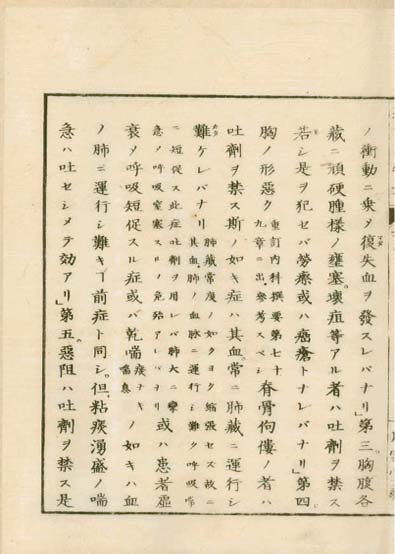 ノ衝動ニ乗メ復失血ヲ發スレバナリ」第三。胸腹各
藏ニ頑硬腫様ノ壅塞。壊疽等アル者ハ吐劑ヲ禁ス
若シ是ヲ犯セバ勞瘵或ハ癌瘡トナレバナリ」第四。
胸ノ形惡ク
重訂内科撰要第七十
九章ニ出。參考スベシ
脊骨佝僂ノ者ハ
吐劑ヲ禁ス斯ノ如キ症ハ其血。常ニ肺藏ニ運行シ
難ケレバナリ
肺藏常度ノ如クヨク縮張セズ故ニ
其血。肺ノ血脉ニ運行シ難ク呼吸常
ニ短促ス此症吐劑ヲ用レバ肺大ニ
急ノ呼吸窒塞スルノ危殆アレバナリ
或ハ患者虚
衰メ呼吸短促スル症或ハ乾喘
痰ナキ
喘息
ノ如キハ血
ノ肺ニ運行シ難キヿ前症ト同シ。但。粘痰湧盛ノ喘
急ハ吐セシメテ効アリ」第五。惡阻ハ吐劑ヲ禁ス是